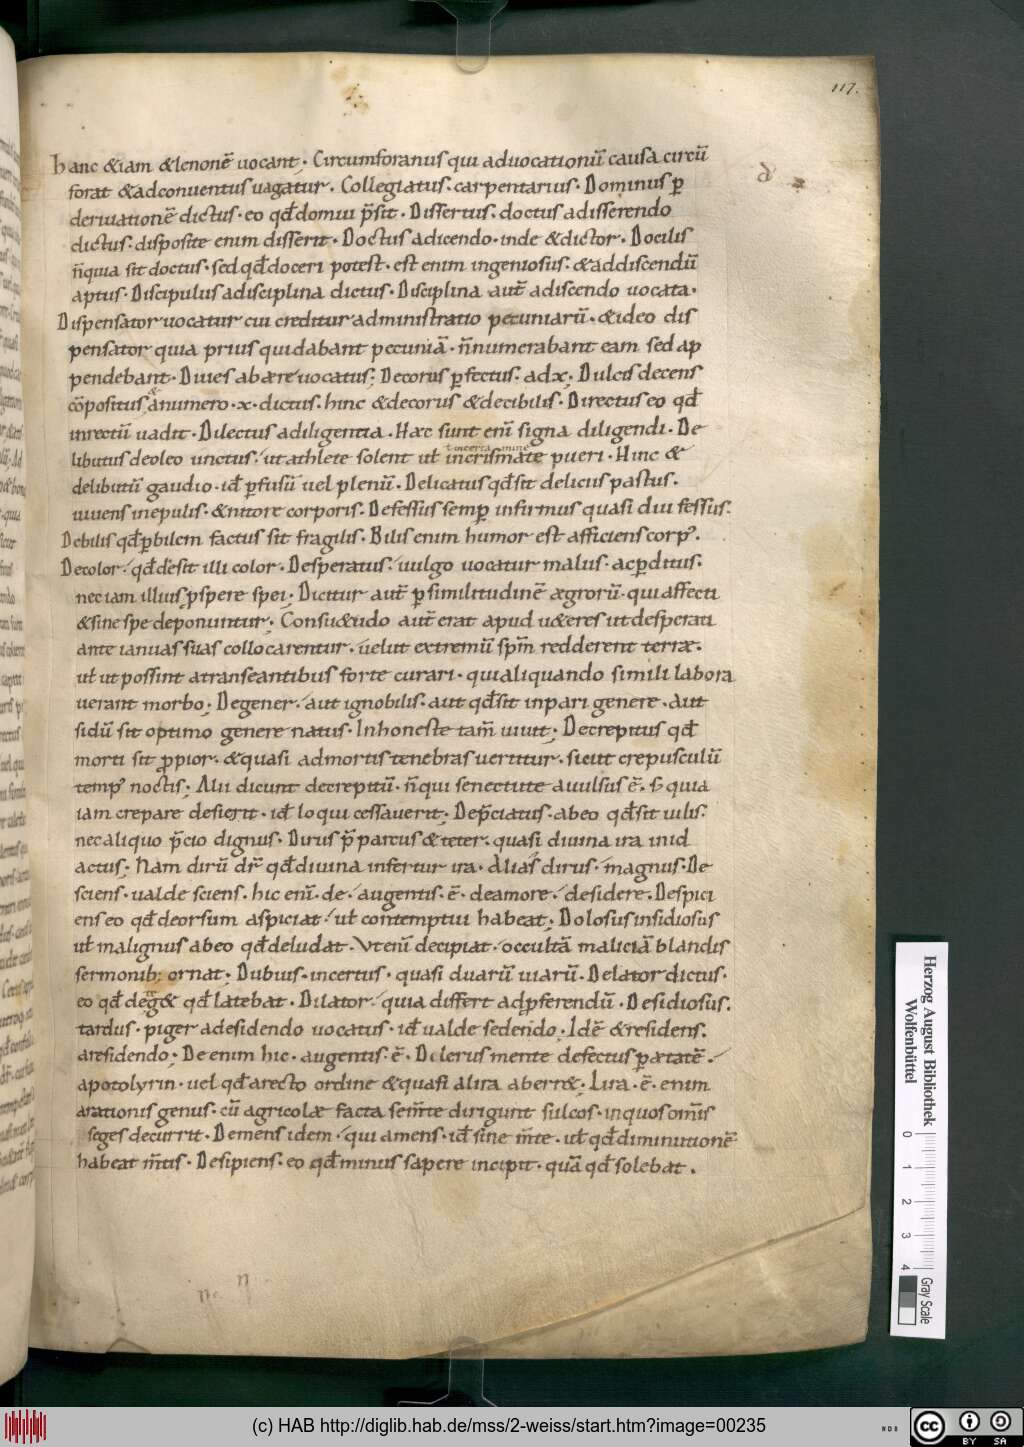 117.
hanc &iam &lenonē uocant; Circumforanus qui aduocationū causa circū
forat &adconuentus uagatur. Collegiatus. carpentarius. Dominus ꝑ
deriuationē dictus. eo qđ domui p̄sit. Dissertus. doctus adisserendo
dictus. disposite enim disserit. Doctus adicendo. inde &dictor. Docilis
ñ quia sit doctus. sed qđ doceri potest. est enim ingeniosus. &addiscendū
aptus. Discipulus adisciplina dictus. Disciplina aut̄ adiscendo uocata.
Dispensator uocatur cui creditur administratio pecuniarū. &ideo dis
pensator quia prius qui dabant pecuniā. ñ numerabant eam sed ap
pendebant. Diues ab aere uocatus; Decorus ꝑfectus. adx; Dulcis decens
cōpositus, a numero. x. dictus. hinc &decorus &decibilis. Directus eo qđ
inrectū uadit. Dilectus adiligentia. Haec sunt enī signa diligendi. De
libutus deoleo unctus. ut athlete solent ut̄ incrismate pueri. Hinc &
delibutū gaudio. iđ ꝑfusū uel plenū. Delicatus qđ sit delicus pastus.
uiuens inepulis. &nitore corporis. Defessus semꝑ infirmus quasi diu fessus.
Debilis qđ ꝑbilem factus sit fragilis. Bilis enim humor est afficiens corp'.
Decolor. qđ desit illi color. Desperatus. uulgo uocatur malus. ac ꝑditus.
nec iam illius, pspere spei; Dicitur aut̄ ꝑsimilitudinē aegrorū. qui affecti
&sine spe deponuntur; Consu&udo aut̄ erat apud u&eres ut desperati
ante ianuas suas collocarentur. uelut extremū spm̄ redderent terrae.
ut̄ ut possint atranseantibus forte curari. qui aliquando simili labora
uerant morbo; Degener. aut ignobilis. aut qđ sit inpari genere. aut
sidū sit optimo genere natus. Inhoneste tam̄ uiuit; Decrepitus qđ
morti sit propior. &quasi admortis tenebras uertitur. sicut crepusculū
temp' noctis; Alii dicunt decrepitū. ñ qui senectute auulsus ē. s& quia
iam crepare desierit. iđ loqui cessauerit; Dep̄ciatus. abeo qđ sit uilis.
nec aliquo p̄cio dignus. Dirus p̄ parcus &teter. quasi diuina ira inid
actus; Nam dirū dr̄ qđ diuina infertur ira. Alias dirus. magnus. De
sciens. ualde sciens. hic enī. de. augentis. ē. deamore. desidere. Despici
ens eo qđ deorsum aspiciat. ut̄ contemptui habeat; Dolosus insidiosus
ut̄ malignus abeo qđ deludat. Vt enī decipiat. occultā maliciā blandis
sermonib: ornat; Dubius. incertus. quasi duarū uiarū. Delator dictus.
eo qđ deteg& qđ latebat. Dilator. quia differt adꝑferendū. Desidiosus.
tardus. piger adesidendo uocatus. iđ ualde sedendo; Idē &residens.
aresidendo; De enim hic. augentis. ē. Delerus mente defectus ꝑaetatē.
apotolyrin. uel qđ arecto ordine &quasi alira aberr&; Lira. ē. enim
arationis genus. cū agricolae facta sem̄te dirigunt sulcos. in quos om̄is
seges decurrit. Demens idem. qui amens. iđ sine m̄te. ut̄ qđ diminutionē
habeat m̄tis. Desipiens. eo qđ minus sapere incipit. quā qđ solebat.
Herzog August Bibliothek
Wolfenbüttel
0 1 2 3 4
Gray Scale
(c) HAB http://diglib.hab.de/mss/2-weiss/start.htm?image=00235
cc BY SA